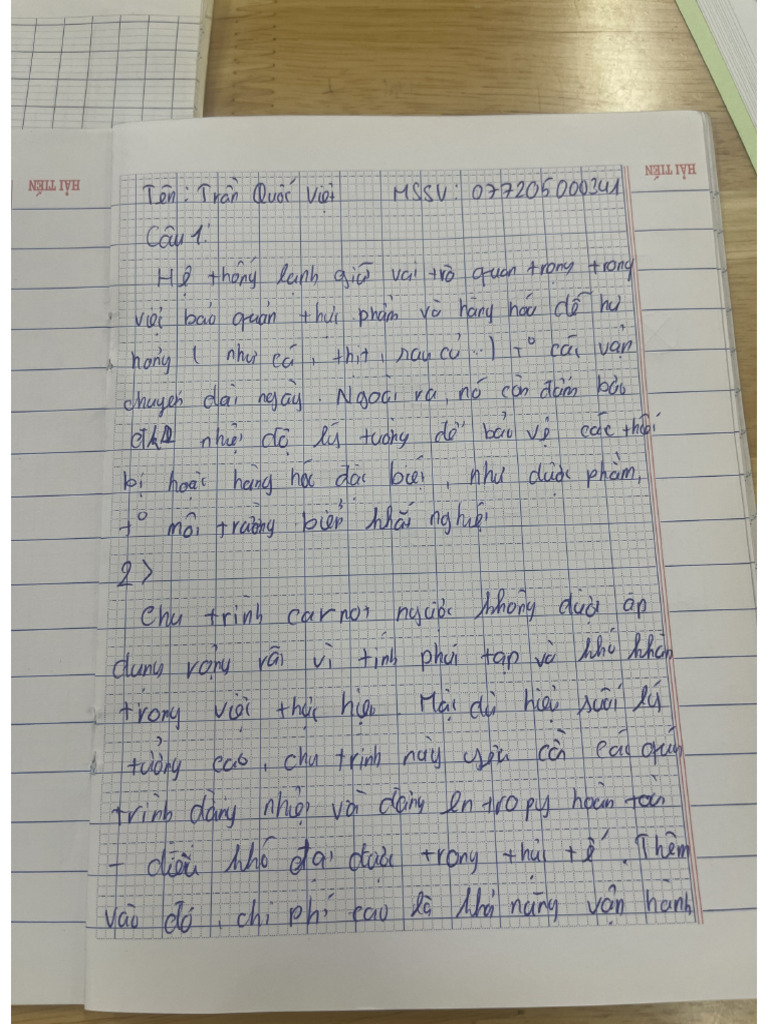 HẢI TIẾN
HẢI TIẾN
Tên: Trần Quốc Việt MSSV: 077205000341
Câu 1:
Hệ thống lạnh giữ vai trò quan trọng trong
việc bảo quản thực phẩm và hàng hóa dễ hư
hỏng ( như cá, thịt, rau củ..) t° các vận
chuyển dài ngày. Ngoài ra, nó còn đảm bảo
nhiệt độ lý tưởng để bảo vệ các thiết
bị hoặc hàng hóc đặc biệt, như dược phẩm,
t° môi trường biển khắc nghiệt
2>
Chu trình carnot ngược không được áp
dụng rộng rãi vì tính phức tạp và khó khăn
trong việc thực hiện Mặc dù hiệu suất lý
tưởng cao, chu trình này yêu cầu các quá
trình đẳng nhiệt và đẳng entropy hoàn toàn
- điều khó đạt được trong thực tế. Thêm
vào đó, chi phí cao là khả năng vận hành